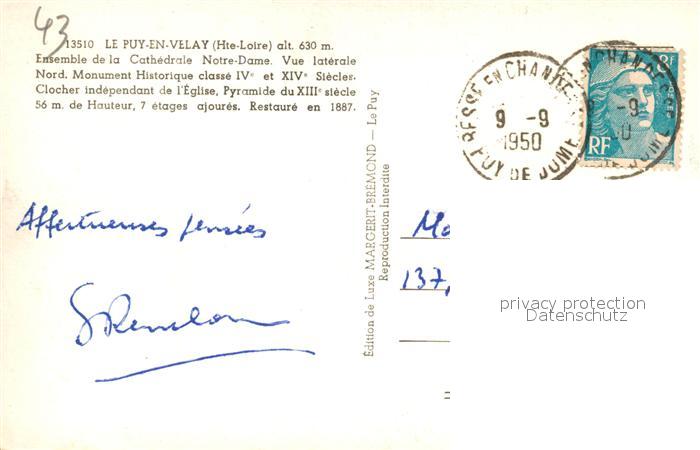 43
13510 LE PUY-EN-VELAY (Hte-Loire) alt. 630 m.
Ensemble de la Cathédrale Notre-Dame. Vue latérale
Nord. Monument Historique classé IVe et XIVe Siècles.
Clocher indépendant de l'Église, Pyramide du XIIIe siècle
56 m. de Hauteur, 7 étages ajourés. Restauré en 1887.
BESSE EN CHANDESSE
9 -9
1950
PUY DE DOME
-9
RF
Affectueuses pensées
Édition de Luxe MARGERIT-BRÉMOND — Le Puy
Reproduction Interdite
137,
privacy protection
Datenschutz